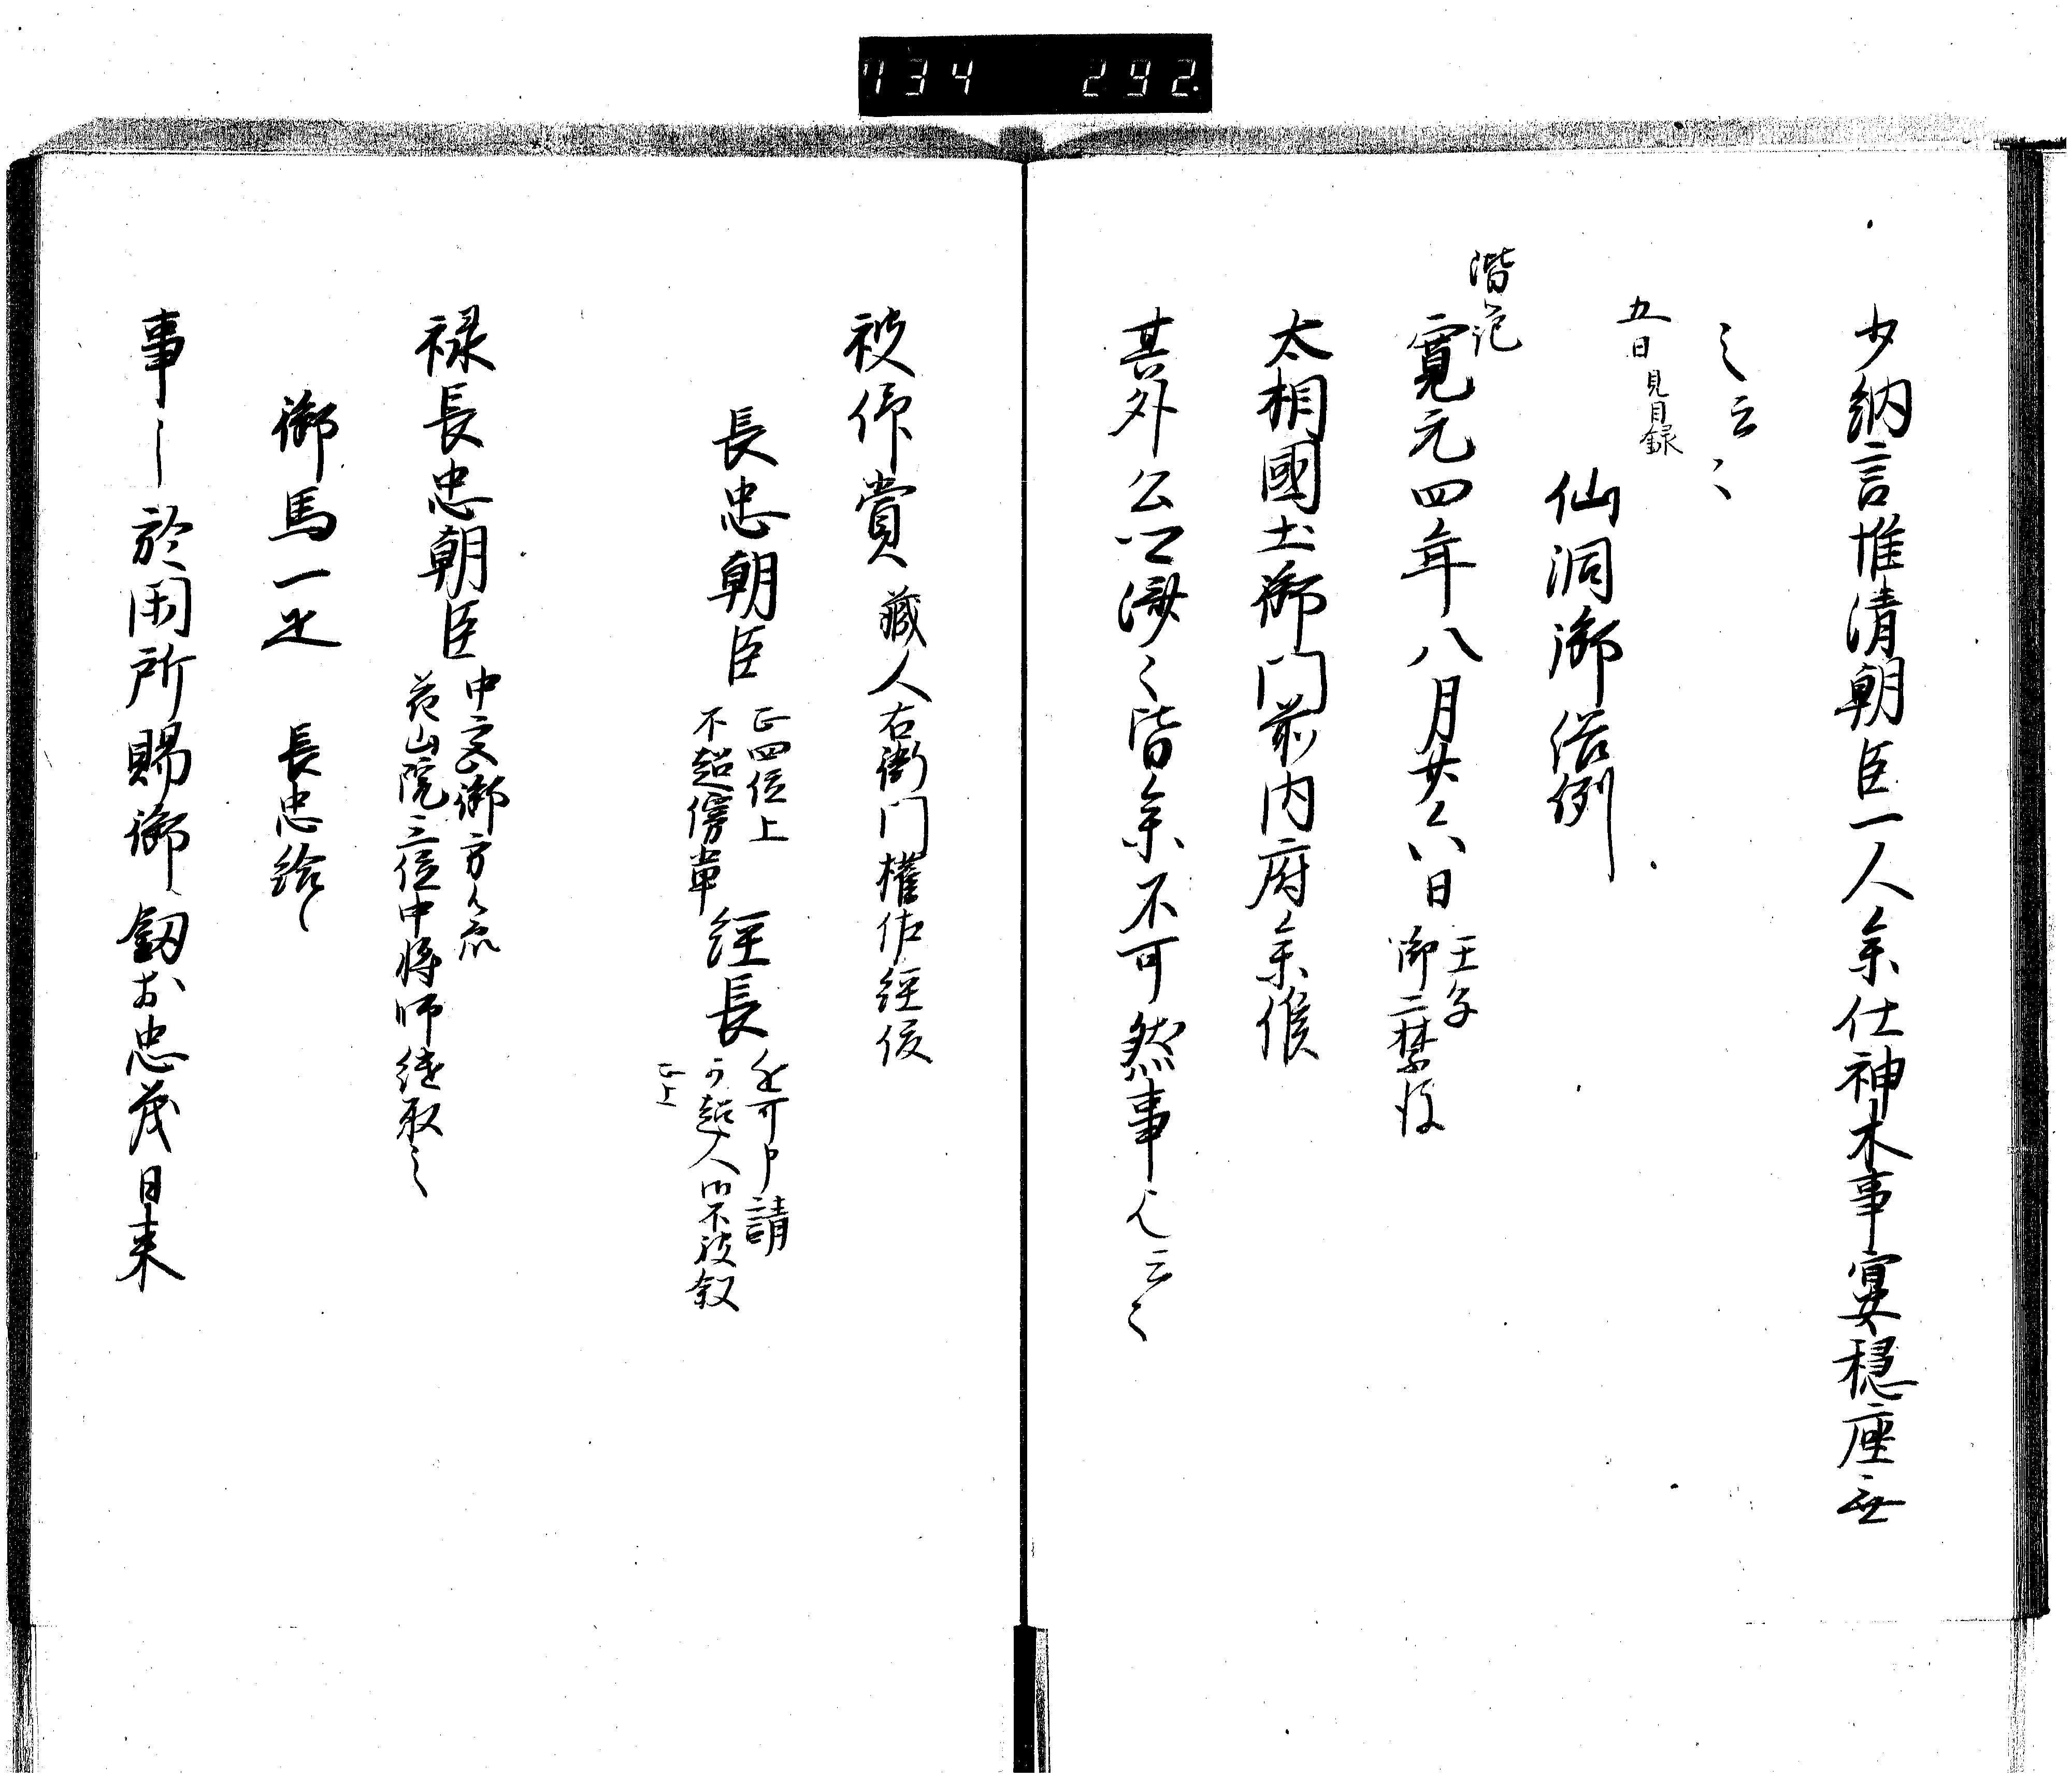 734 292.
少納言惟清朝臣一人参仕神木事宴穏座無
之云々
五日見目録
仙洞御俗例
階記
寛元四年八月廿六日 壬子 御二禁後
太相國土御門前内府参候
其外公卿済々皆参不可然事也云々
被仰賞 藏人右衛門權佐經俊
長忠朝臣 正四位上
不超傍輩
經長 
可超人仍不被叙
正上
禄長忠朝臣 中宮御方
花山院三位中将師継取之
御馬一疋 長忠給之
事之於閑所賜御釼於忠茂日来